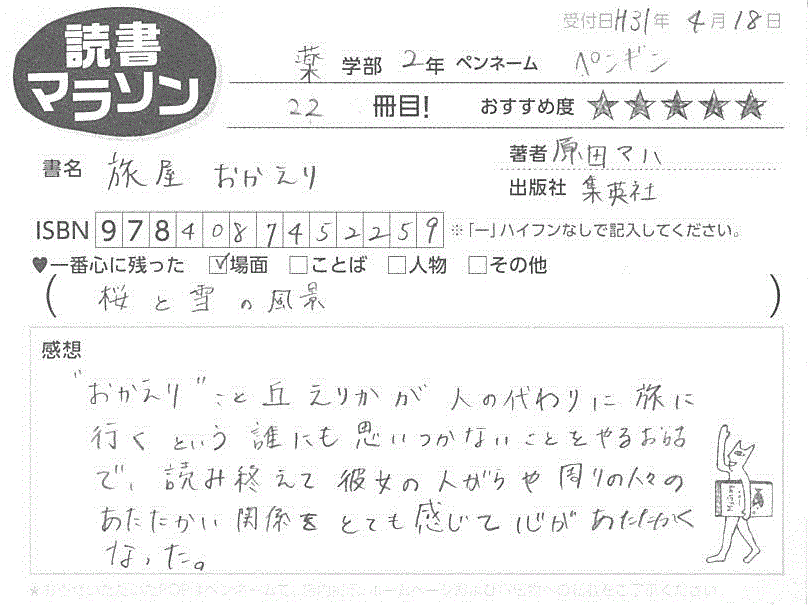 読書
マラソン
受付日H31年 4月18日
薬 学部 2年 ペンネーム ペンギン
22 冊目! おすすめ度 ★★★★★
書名 旅屋 おかえり
著者 原田マハ
出版社 集英社
ISBN 9784087452259 ※「ー」ハイフンなしで記入してください。
♥一番心に残った ☑場面 □ことば □人物 □その他
(桜と雪の風景)
感想
"おかえり"こと丘えりかが人の代わりに旅に
行くという誰にも思いつかないことをやるお話
で、読み終えて彼女の人がらや周りの人々の
あたたかい関係をとても感じて心があたたかく
なった。